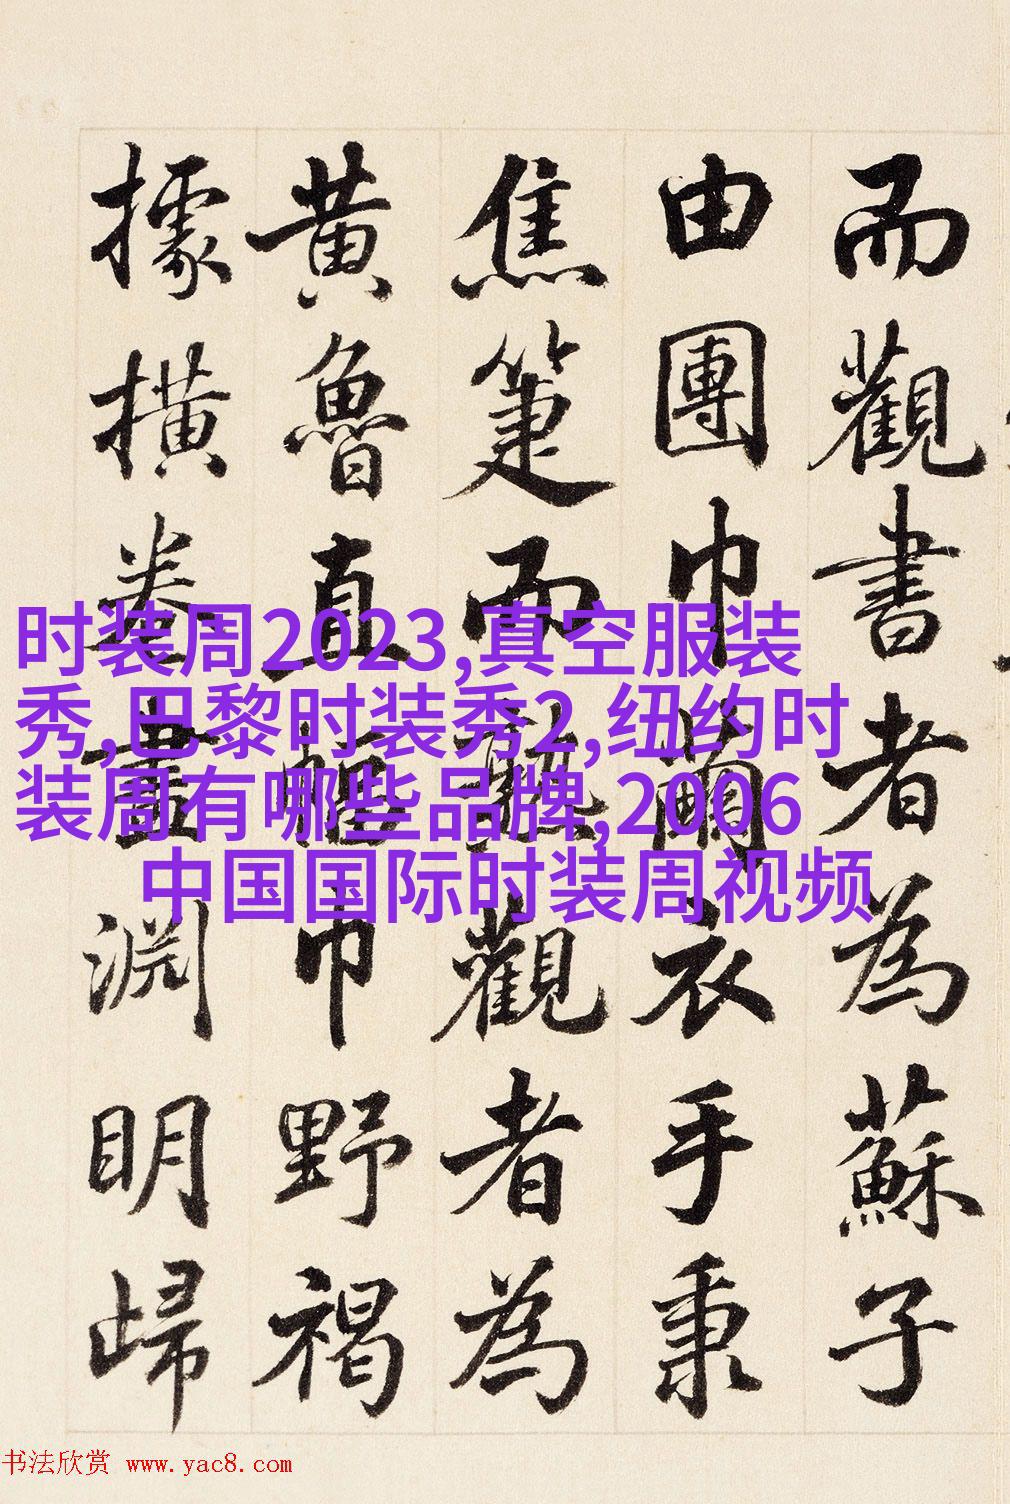 而觀書者為蘇子
由團巾繭衣手秉
焦箑而熟觀者為
黃魯直幅巾野褐
據撗卷畫淵明歸
时装周2023,真空服装
秀,巴黎时装秀2,纽约时
装周有哪些品牌,2006
中国国际时装周视频
书法欣赏 www.yac8.com